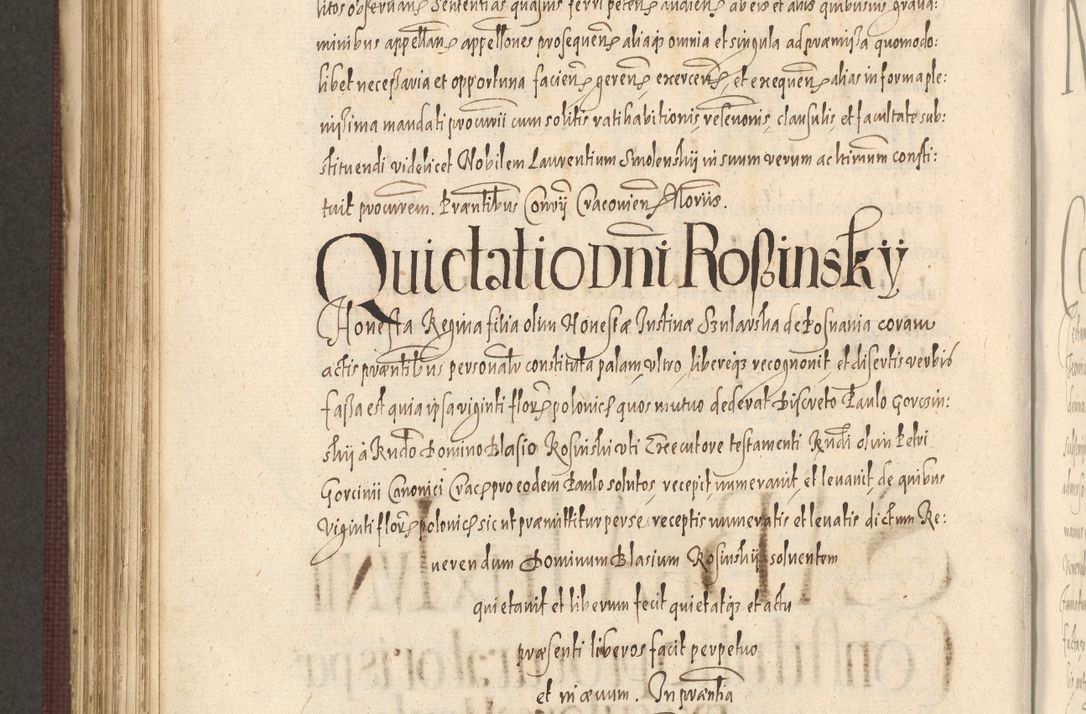 litos observan sententias quasuis ferri peten audien ab eis et aliis quibusuis graua:
minibus appellan appellones prosequen aliaq omnia et singula ad præmissa quomodo:
libet necessaria et opportuna facien, geren, exercen, et exequen alias in forma ple:
nissima mandati procurii cum solitis ratihabitionis, releuonis, clausulis, et facultate sub:
stituendi videlicet Nobilem Laurentium Smolenskij in suum verum ac ltimum consti:
tuit procurem. Præntibus Conrÿ Cracouien Noriis.
Quietatio Dni Roßinskÿ
Honesta Regina filia olim Honestæ Iustinæ Szularska de Posnania coram
actis præntibus personalr constituta palam, vltro, libereq recognouit, et disertis verbis
fassa est quia ipsa viginti flor polonich quos mutuo dederat Discreto Paulo Gorczin:
skij à Rndo Domino Blasio Rosinskij vti Exeecutore testamenti Rndi olim Petri
Gorcinij Canonici Crac pro eodem Paulo solutos, recepit, numerauit, et leuauit, de quibus
Viginti flor polonich sic ut præmittitur per se receptis numeratis et leuatis dictum Re:
uerendum Dominum Blasium Rosinskij soluentem
quietauit et liberum fecit quietatq et actu
præsenti liberos facit perpetuo
et in æuum. In præntia